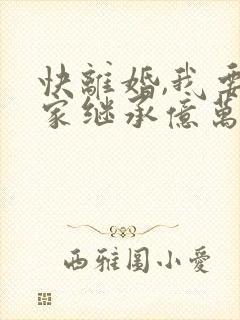 快離婚,我要
家继承億萬
西雅圖小愛